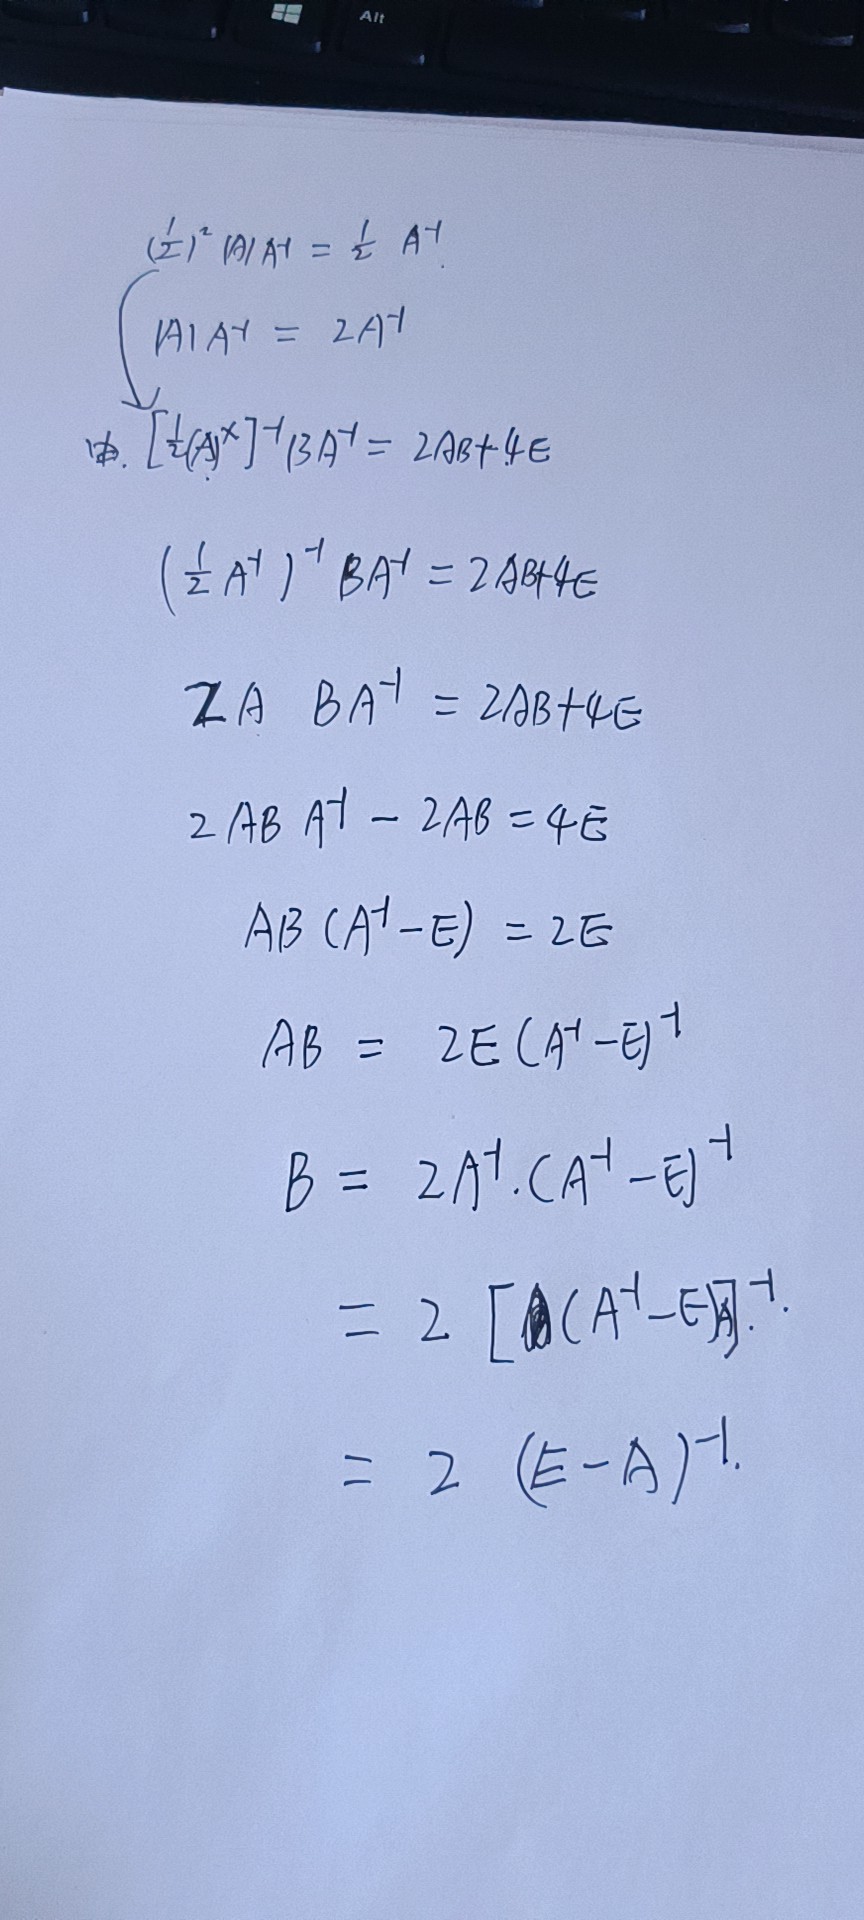 Alt
(1/2)² |A| A⁻¹ = 1/2 A⁻¹.
|A| A⁻¹ = 2A⁻¹
由. [1/2(A)*]⁻¹ B A⁻¹ = 2AB + 4E
(1/2 A⁻¹)⁻¹ BA⁻¹ = 2AB+4E
2A BA⁻¹ = 2AB+4E
2AB A⁻¹ - 2AB = 4E
AB (A⁻¹-E) = 2E
AB = 2E (A⁻¹-E)⁻¹
B = 2A⁻¹.(A⁻¹-E)⁻¹
= 2 [(A⁻¹-E)A]⁻¹.
= 2 (E-A)⁻¹.